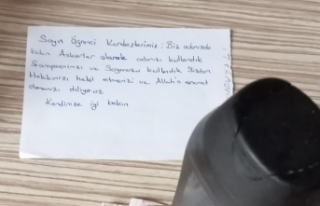 Sayın Öğrenci Kardeşlerimiz: Biz odanızda
kalan Askerler olarak odanızı kullandık
Şampuanınızı ve Sabununuzu kullandık Sizden
Hakkınızı helal etmenizi ve Allah'a emanet
olmanızı diliyoruz
Kendinize iyi bakın